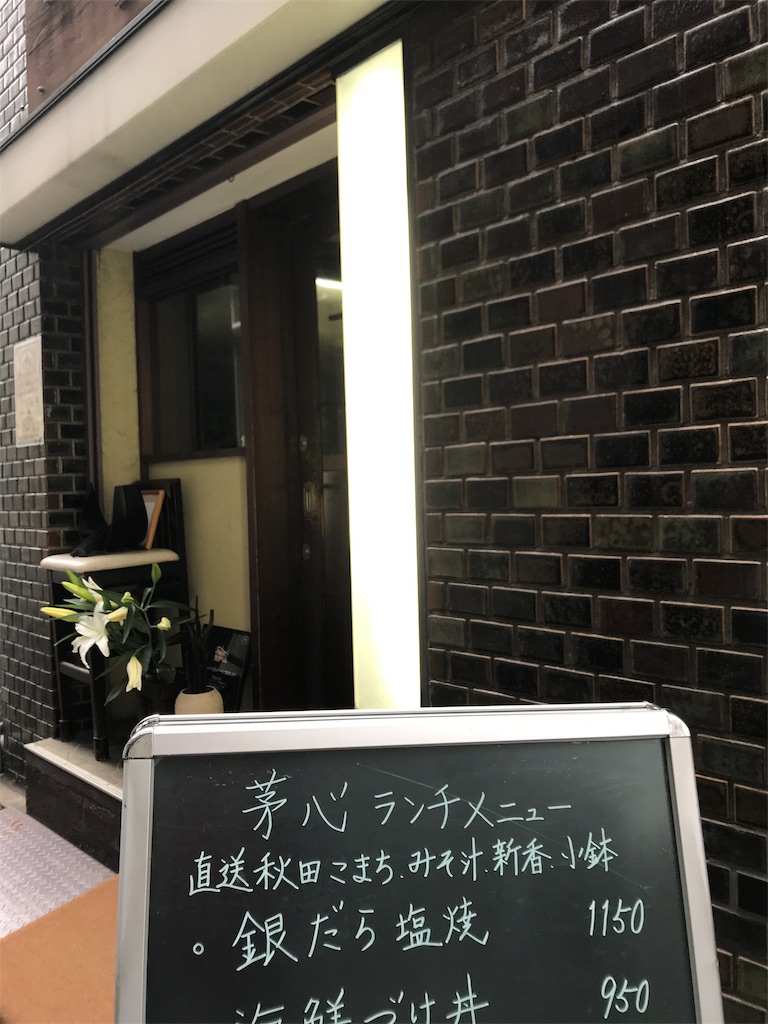 茅心 ランチメニュー
直送秋田こまち.みそ汁.新香.小鉢
。銀だら塩焼 1150
海鮮づけ丼 950